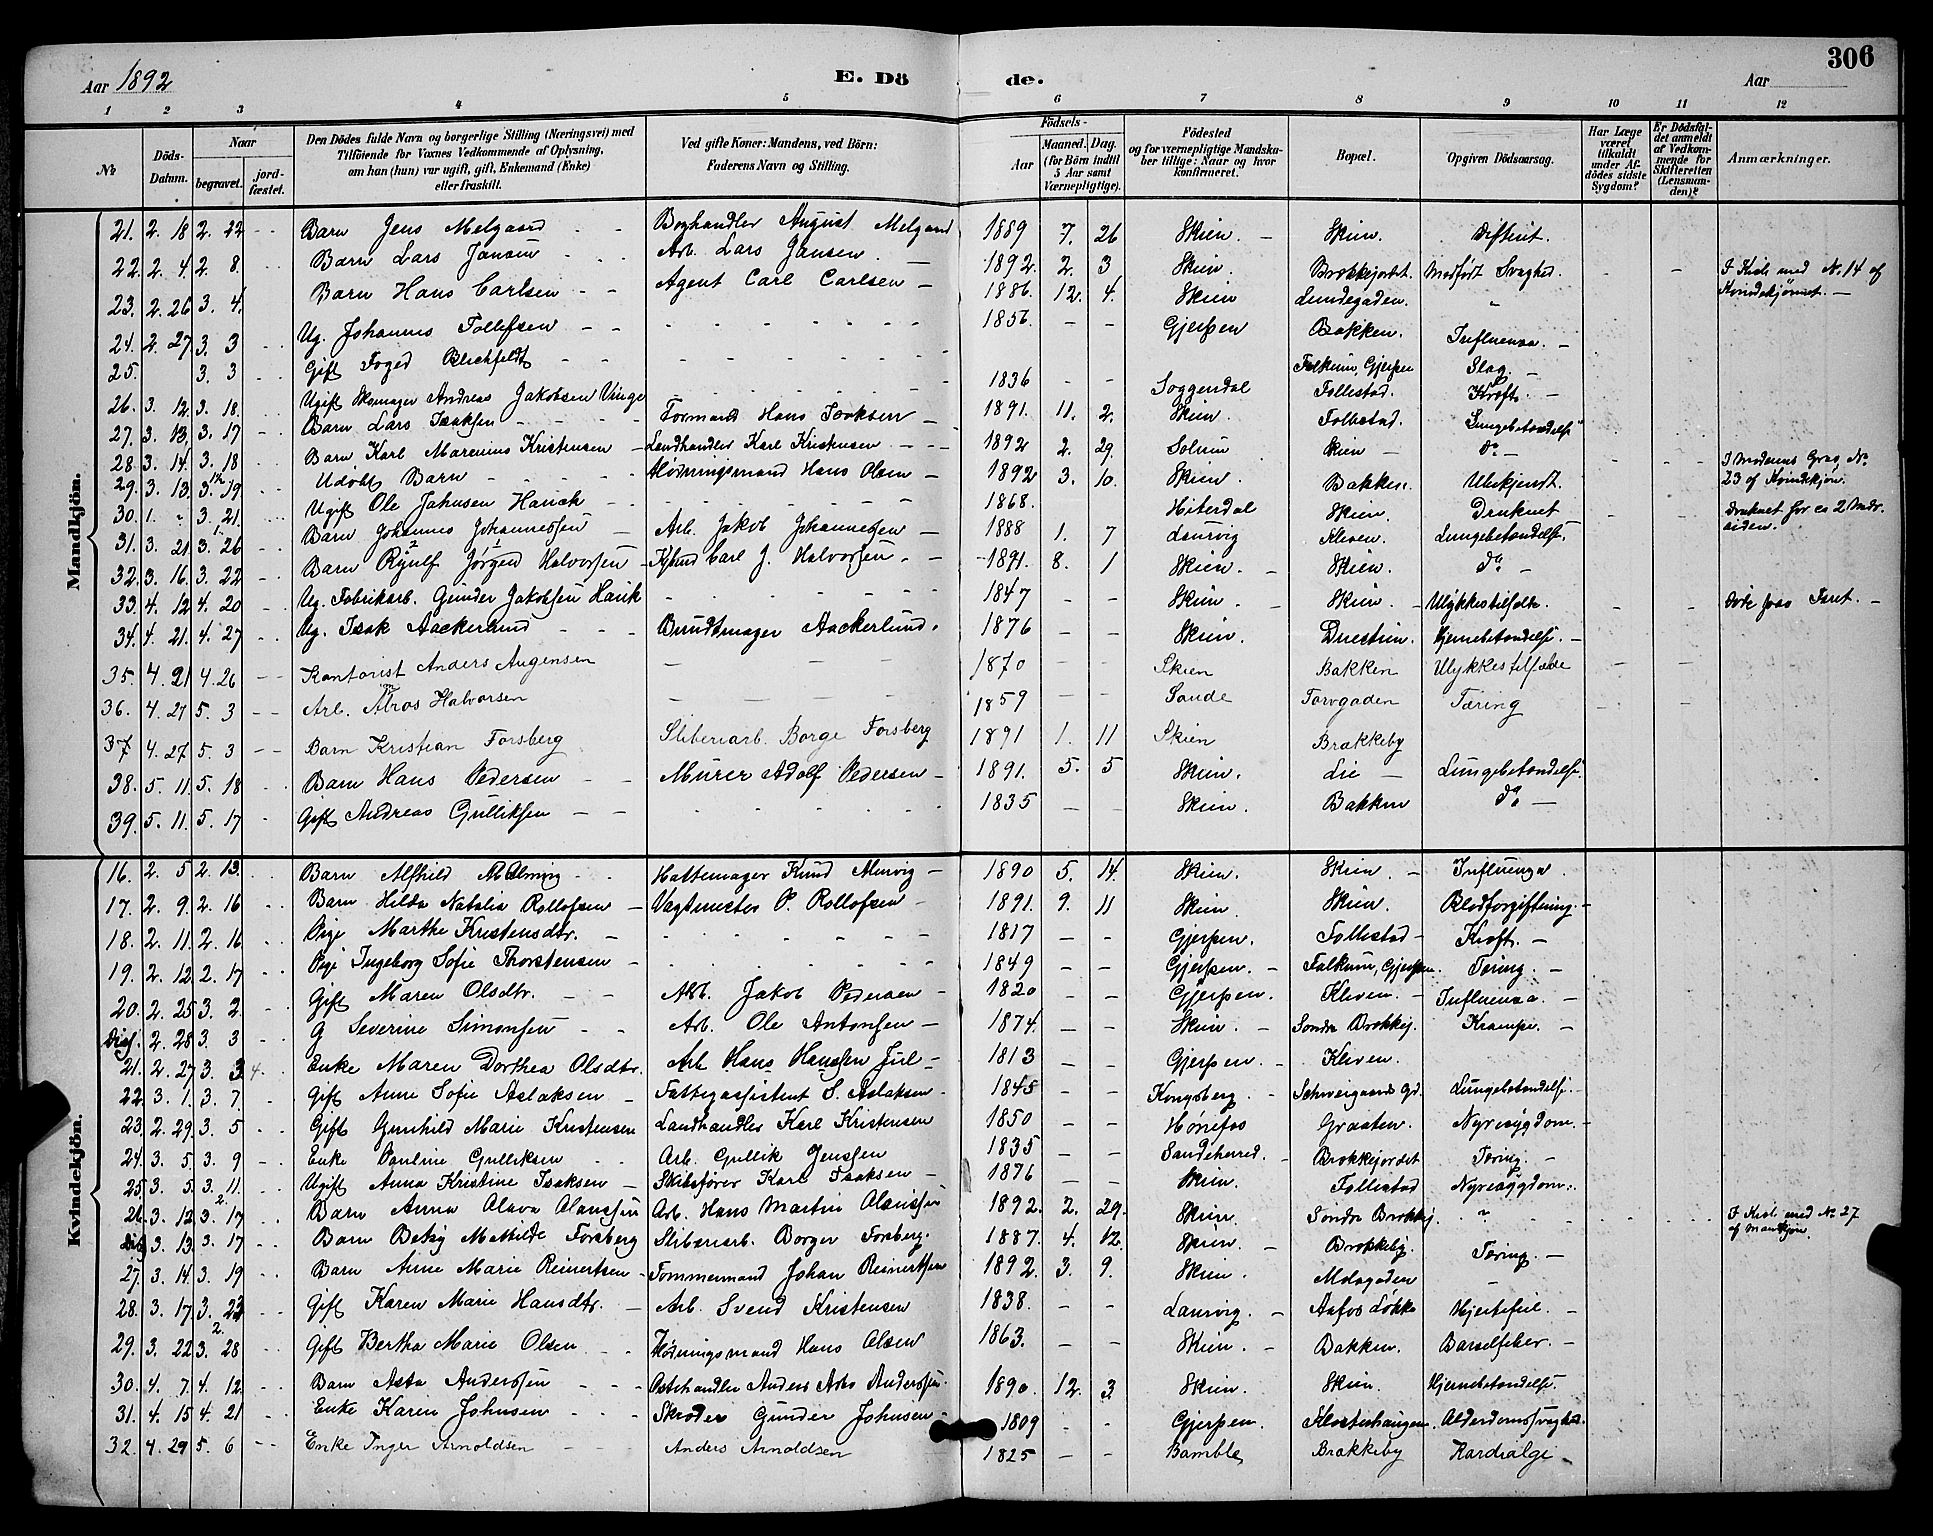 Aar 1892
E. Dö
de.
Aar
306
1 2 3 4 5 6 7 8 9 10 11 12
№
Döds-Datum.
Naar
begravet.
jord-fæstet.
Den Dödes fulde Navn og borgerlige Stilling (Næringsvei) med Tilföiende for Voxnes Vedkommende af Oplysning, om han (hun) var ugift, gift, Enkemand (Enke) eller fraskilt.
Ved gifte Koner: Mandens, ved Börn: Faderens Navn og Stilling.
Födsels-
Aar
Maaned. Dag.
(for Börn indtil 5 Aar samt Værnepligtige).
Födested og for værnepligtige Mandskaber tillige: Naar og hvor konfirmeret.
Bopæl.
Opgiven Dödsaarsag.
Har Læge været tilkaldt under Afdödes sidste Sygdom?
Er Dödsfaldet anmeldt af Vedkommende for Skifteretten (Lensmanden)?
Anmærkninger.
Mandkjön.
21. 2. 18 2. 22 Barn Jens Melgaard Boghandler August Melgaard 1889 7. 26 Skien. Skien. Difterit.
22. 2. 4. 2. 8. Barn Lars Jansen Arb. Lars Jansen. 1892. 2. 3 Skien. Brekkejordet. Medfødt Svaghed. I Kiste med N. 14 af Kvindekjønnet.
23. 2. 26 3. 4. Barn Hans Carlsen Agent Carl Carlsen 1886. 12. 4. Skien Lundegaden. "
24. 2. 27 3. 3 Ug. Johannes Tollefsen 1856. Gjerpen Bakken. Influenza.
25. 3. 3 Gift Foged Blichfeldt Falkum, Gjerpen Slag.
26. 3. 12. 3. 18. Ugift Skomager Andreas Jakobsen Vinge 1836 Soggendal Follestad. Kræft.
27. 3. 13. 3. 17 Barn Lars Isaksen Formand Hans Isaksen 1891. 11. 2. Skien. Follestad. Lungebetændelse
28. 3. 14. 3. 18 Barn Karl Marenius Kristensen Landhandler Karl Kristensen 1892 2. 29. Solum Skien do
29. 3. 13. 3. 19 Udøbt Barn Hødningsmand Hans Olsen 1892 3. 10. Skien. Bakken. Ubekjendt. I Moderens Grav, No 23 af Kvindekjøn.
30. 1. " 3. 21. Ugift Ole Johnsen Hauak 1868. Hiterdal Skien. Druknet Druknet for ca 2 Mdr. siden.
31. 3. 21. 3. 26 Barn Johannes Johannessen Arb. Jakob Johannesen 1888 1. 7 Laurvig Kleven. Lungebetændelse,
32. 3. 16. 3. 22 Barn Rynlf Jørgen Halvorsen Kjbmd Carl J. Halvorsen. 1891. 8. 1 Skien. Skien. do
33. 4. 12 4. 20 Ug. Fabrikarb. Gunder Jakobsen Hauk 1847 Skien. Skien. Ulykkestilfælde.
34. 4. 21. 4. 27 Ug. Isak Aackerlund Bundtmager Aackerlund. 1876 Skien. Duestien. Hjernebetændelse.
35. 4. 21 4. 26 Kontorist Anders Augensen 1870 Skien Bakken Ulykkestilfælde
36. 4. 27 5. 3 Arb. Abros Halvorsen 1859 Sande Torvgaden Tæring
37 4. 27 5. 3 Barn Kristian Forsberg Sliberiarb. Borge Forsberg 1891 1. 11 Skien Brækkeby
38. 5. 11. 5. 18 Barn Hans Pedersen Murer Adolf Pedersen 1891. 5. 5 Skien. Lie Lungebetændelse.
39. 5. 11. 5. 17 Gift Andreas Gulliksen 1835 Skien. Bakken do
Kvindekjön.
16. 2. 5 2. 13. Barn Alfhild Hattemager Knud 1890 5. 14. Skien. Skien. Influenza.
17. 2. 9. 2. 16 Barn Hilda Natalia Rollofsen Vagtmester P. Rollofsen 1891. 9. 11 Skien. Skien. Blodforgiftning.
18. 2. 11. 2. 16 Pige Marthe Kristensdtr. 1817 Gjerpen. Follestad Kræft.
19. 2. 12. 2. 17 Pige Ingeborg Sofie Thorstensen 1849 Gjerpen. Falkum, Gjerpen. Tæring.
20. 2. 25 3. 2. Gift Maren Olsdtr. Arb. Jakob Pedersen 1820 Gjerpen. Kleven. Influenza.
Diss. 2. 28 3. 3 G Severine Simonsen Arb. Ole Antonsen 1874. Skien. Søndre Brekkej. Krampe.
21. 2. 27 3. 3 4. Enke Maren Dorthea Olsdtr. Arb Hans Hanssen Jul 1813 Gjerpen Kleven.
22. 3. 1. 3. 7. Gift Anne Sofie Aslaksen Fattigassistent S. Aslaksen 1845 Kongsberg. Schweigaards Gd. Lungebetændelse.
23. 2. 29. 3. 5 Gift Gunhild Marie Kristensen Landhandler Karl Kristensen 1850 Hønefos Graaten. Nyresygdom.
24. 3. 5. 3. 9 Enke Pauline Gulliksen Arb. Gullik Jenssen 1835 Sandeherred. Brekkejordet Tæring.
25. 3. 5. 3. 11. Ugift Anna Kristine Isaksen Skibsfører Karl Isaksen 1876 Skien. Follestad Nyresygdom.
26. 3. 12. 3. 17 Barn Anna Olava Olaussen Arb. Hans Martin Olaussen 1892. 2. 29. Skien. Søndre Brekkej. " I Kiste med No 27 af Mandkjøn.
Diss 3. 13. 3. 17 Barn Betsy Mathilde Forsberg Sliberiarb. Borger Forsberg. 1887. 4. 12. Skien. Brekkeby. Tæring.
27. 3. 14. 3. 19 Barn Anne Marie Reinertsen Tømmermand Johan Reinertsen 1892. 3. 9. Skien. Melagaden
28. 3. 17. 3. 23 Gift Karen Marie Hansdtr. Arb. Svend Kristensen 1838. Laurvig. Aafos Løkke Hjertefeil.
29. 3. 22 3. 28 Gift Bertha Marie Olsen Hødningsmand Hans Olsen 1863. Skien. Bakken. Barselfeber.
30. 4. 7. 4. 12 Barn Asta Anderssen Ostehandler Anders Anderssen. 1890. 12. 3. Skien. Skien. Hjernebetændelse.
31. 4. 15 4. 21 Enke Karen Johnsen Skræder Gunder Johnsen 1809 Gjerpen. Klosterhaugen. Alderdomssvaghed.
32. 4. 29 5. 6 Enke Inger Arnoldsen Anders Arnoldsen 1825 Bamble, Brækkeby Kardialgi